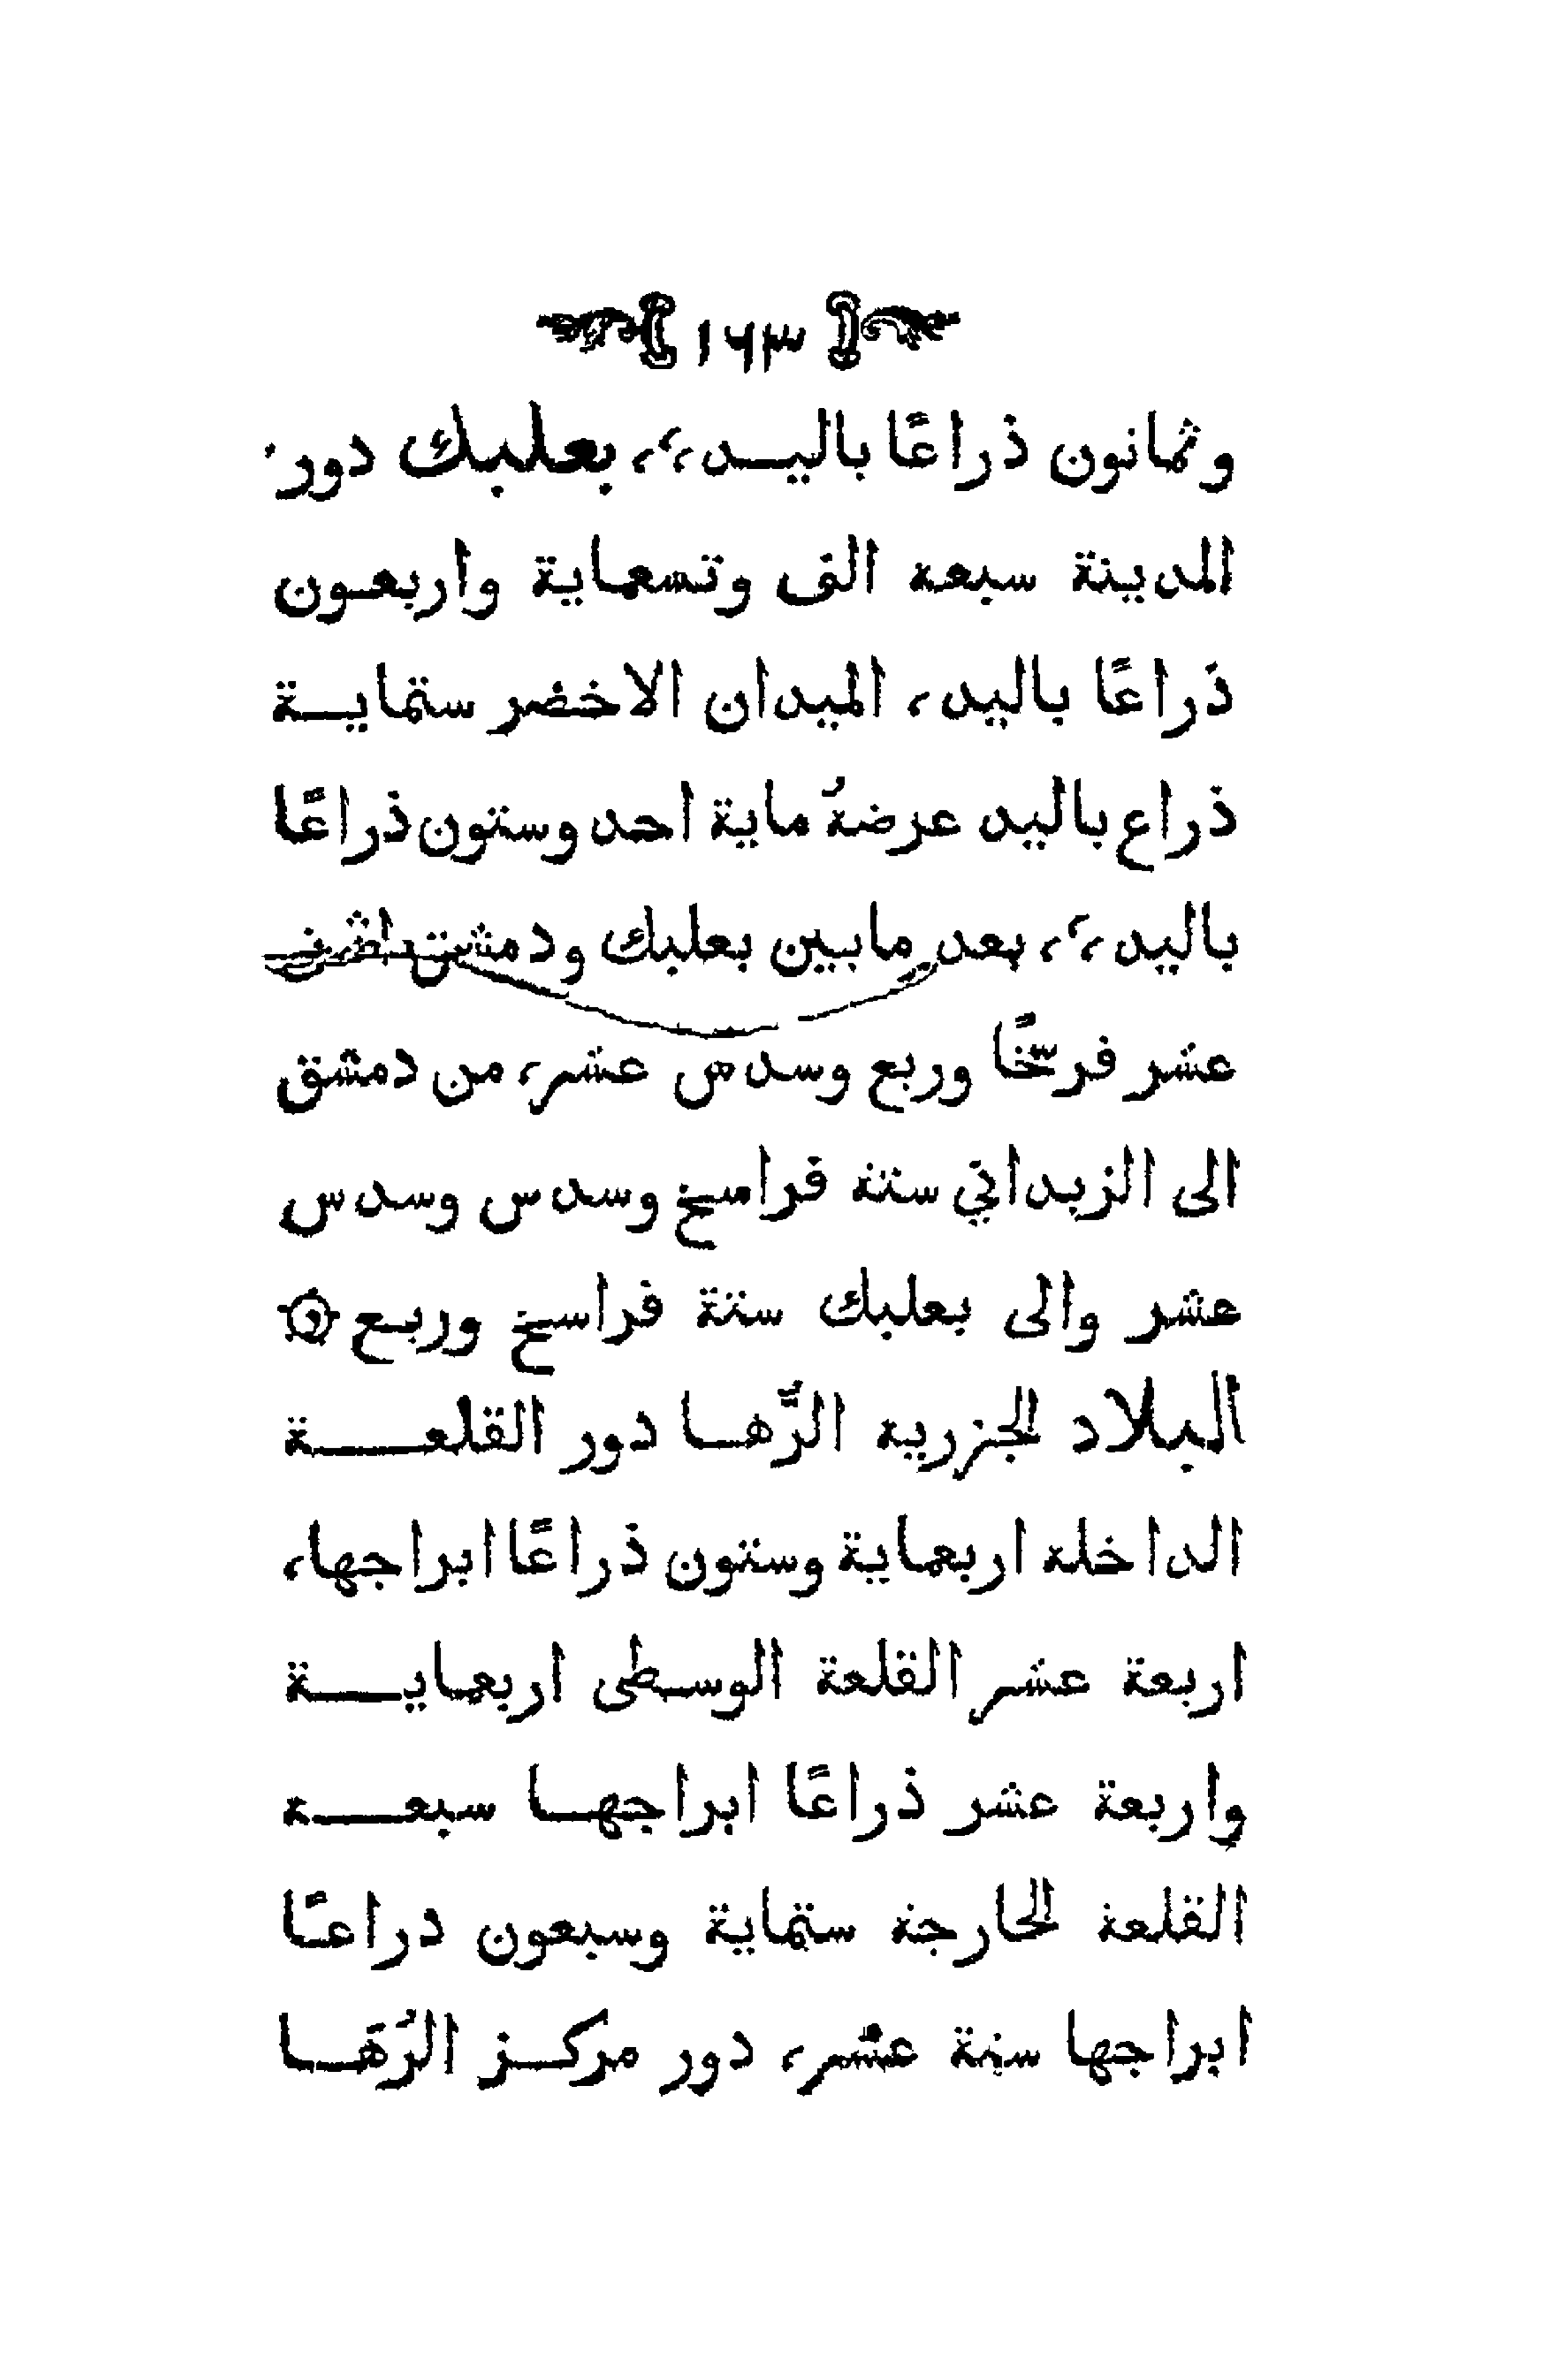 ١٦٣
وثمانون ذراعًا باليـد،، بعلبك دور
المدينة سبعه الف وتسعماية واربعون
ذراعًا باليد، الميدان الاخضر ستمايـة
ذراع باليد عرضهُ ماية احد وستون ذراعًا
باليد،، بعد مابين بعلبك ودمشق اثنى
عشر فرسخًا وربع وسدس عشر، من دمشق
الى الزبداني ستة فراسخ وسدس وسدس
عشر والى بعلبك ستة فراسخ وربـع
البلاد الجزريه الرُّهـا دور القلعـــة
الداخله اربعماية وستون ذراعًا ابراجها،
اربعة عشر القلعة الوسـطى اربعمايـــة
واربعة عشر ذراعًا ابراجهـا سبعـــه
القلعة الخارجة ستماية وسبعون دراعـًا
ابراجها ستة عشر، دور مركـز الرُهَـا